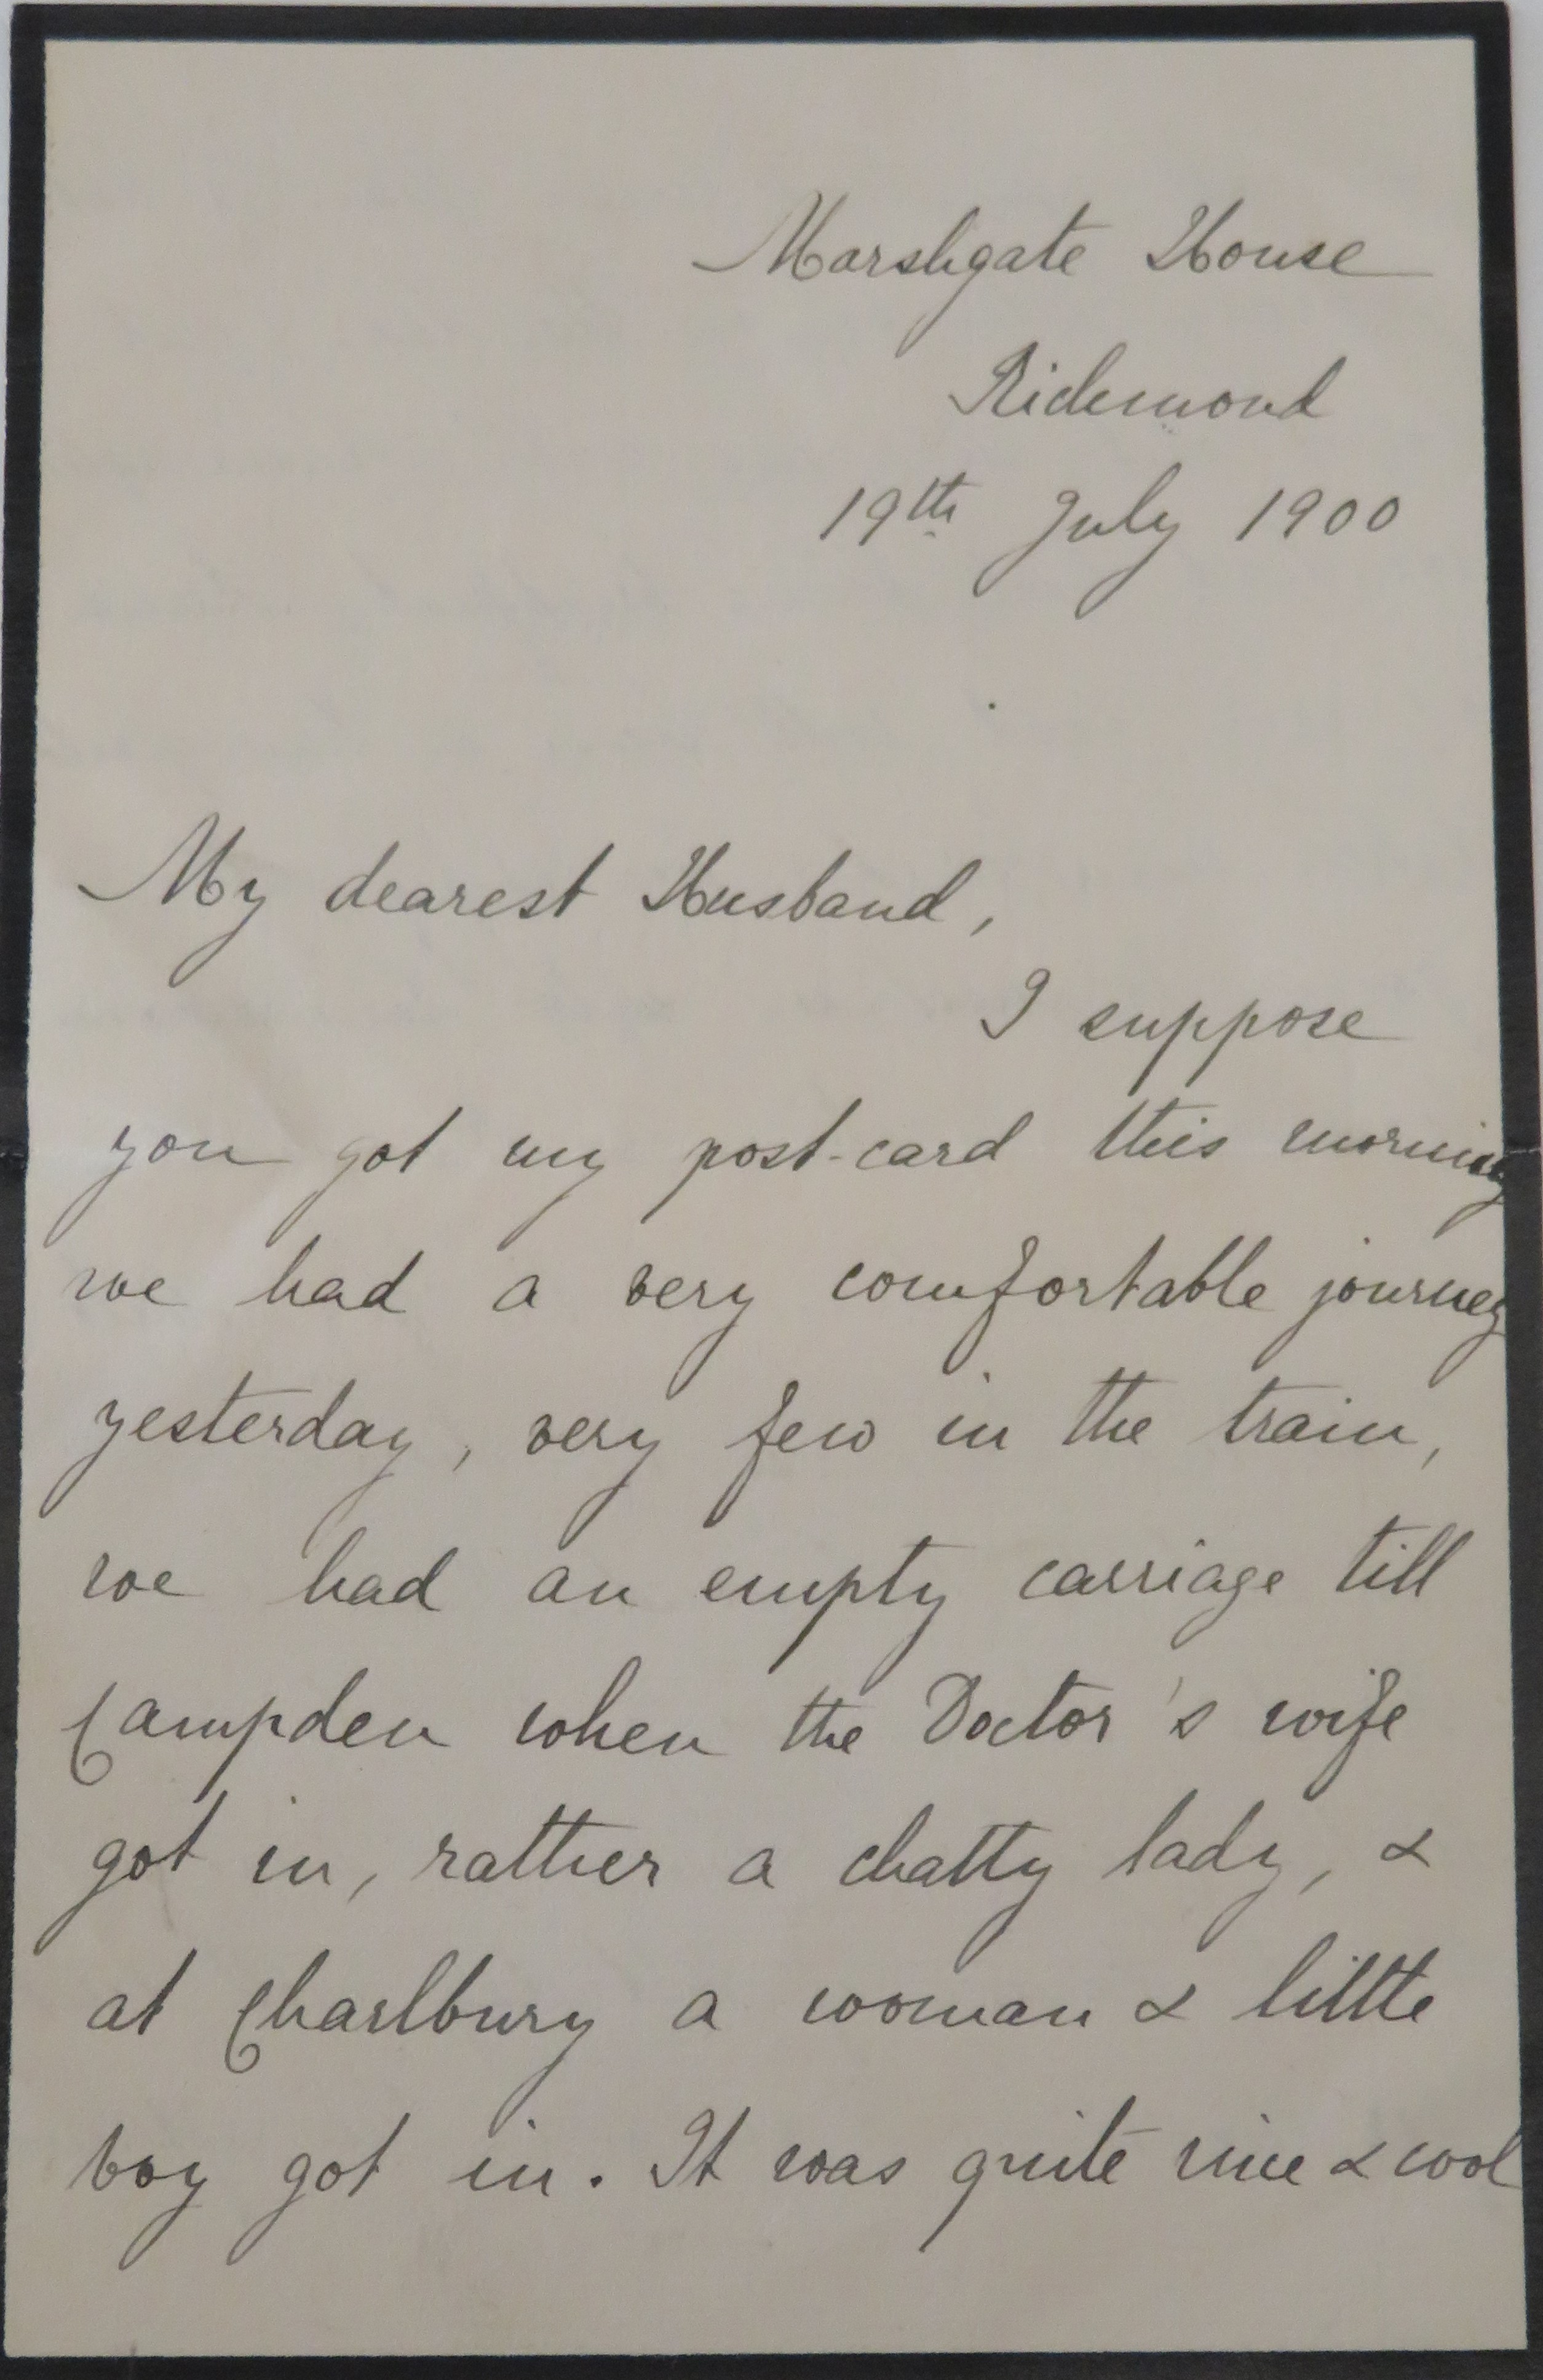 Marshgate House
Richmond
19th July 1900
My dearest Husband,
I suppose
you got my post-card this morning
we had a very comfortable journey
yesterday, very few in the train,
we had an empty carriage till
Campden when the Doctor's wife
got in, rather a chatty lady, &
at Charlbury a woman & little
boy got in. It was quite nice & cool